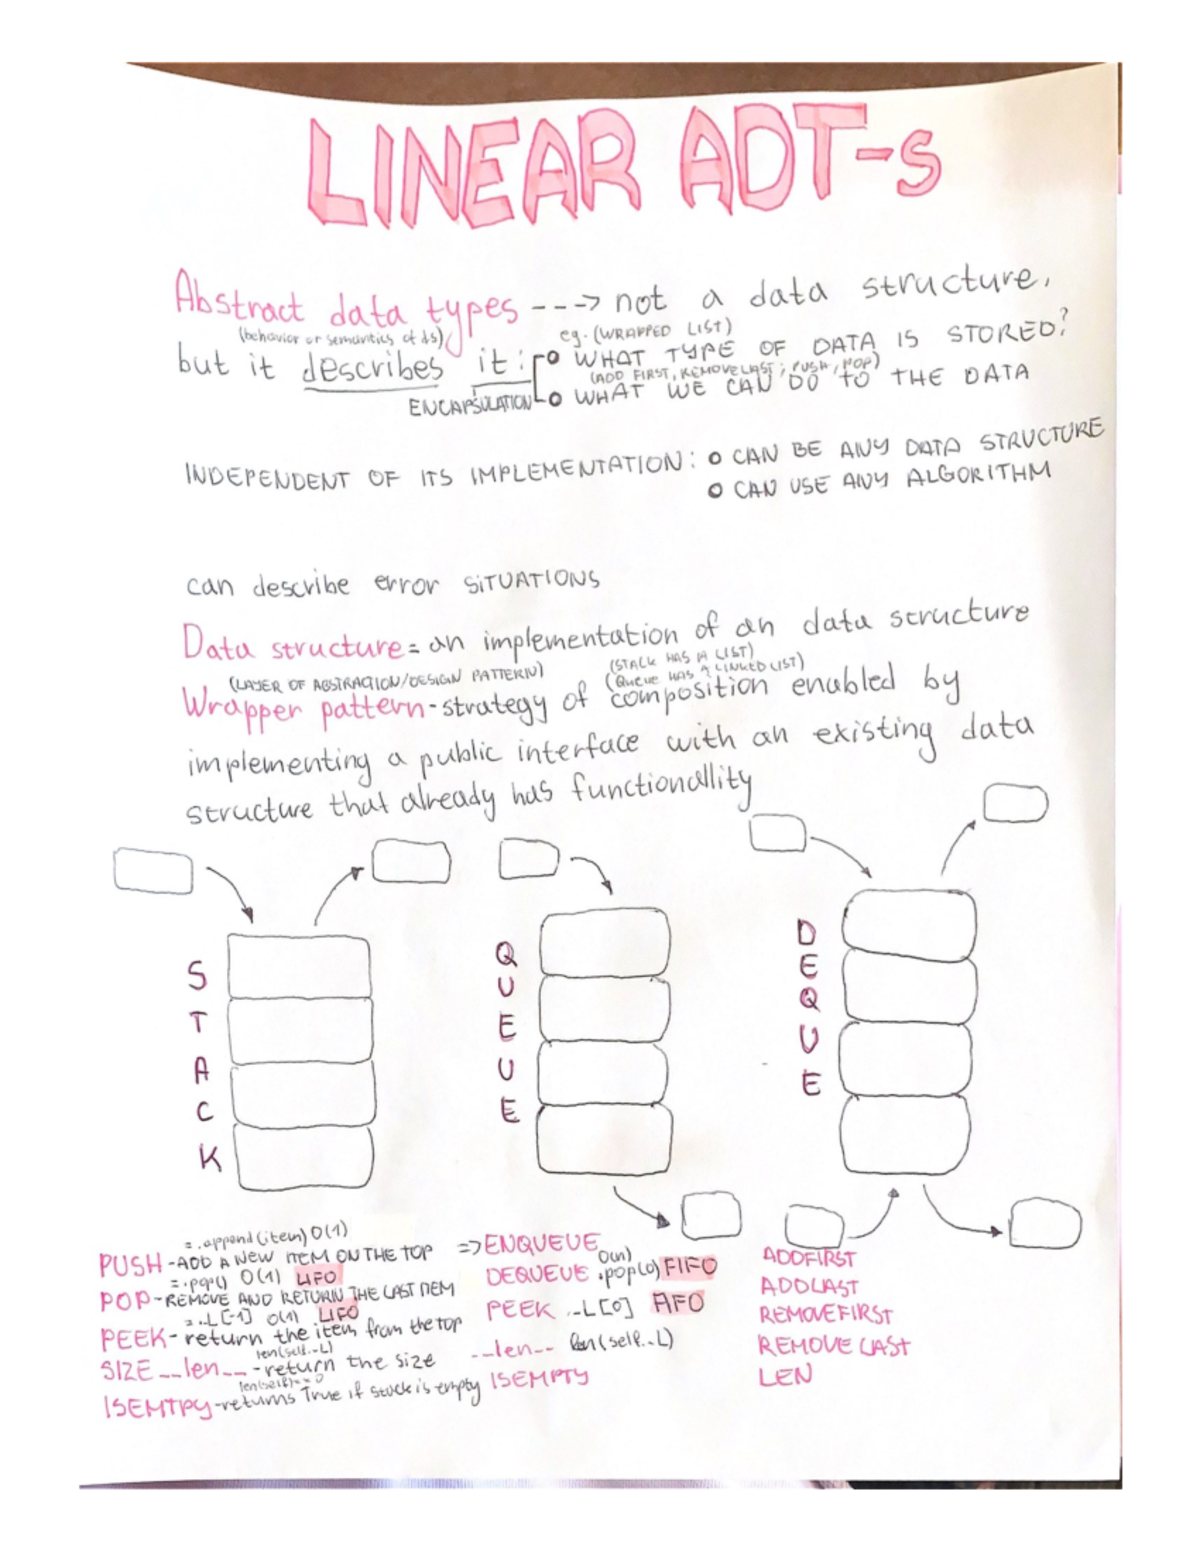 LINEAR ADT-s
Abstract data types ---> not a data structure,
(behavior or semantics of ds)
eg. (WRAPPED LIST)
but it describes it: o WHAT TYPE OF DATA IS STORED?
(ADD FIRST, REMOVE LAST; PUSH, POP)
ENCAPSULATION o WHAT WE CAN DO TO THE DATA
INDEPENDENT OF ITS IMPLEMENTATION: o CAN BE ANY DATA STRUCTURE
o CAN USE ANY ALGORITHM
can describe error SITUATIONS
Data structure = an implementation of an data structure
(LAYER OF ABSTRACTION/DESIGN PATTERN)
(STACK HAS A LIST)
(Queue HAS A LINKED LIST)
Wrapper pattern - strategy of composition enabled by
implementing a public interface with an existing data
structure that already has functionallity
STACK
QUEUE
DEQUE
= .append(item) O(1)
PUSH - ADD A NEW ITEM ON THE TOP
= .pop() O(1) LIFO
POP - REMOVE AND RETURN THE LAST ITEM
= ._L[-1] O(1) LIFO
PEEK - return the item from the top
len(self._L)
SIZE __len__ - return the size
len(self) == 0
ISEMTPY - returns True if stack is empty
=> ENQUEUE
O(n)
DEQUEUE .pop(0) FIFO
PEEK ._L[0] FIFO
__len__ len(self._L)
ISEMPTY
ADDFIRST
ADDLAST
REMOVEFIRST
REMOVE LAST
LEN